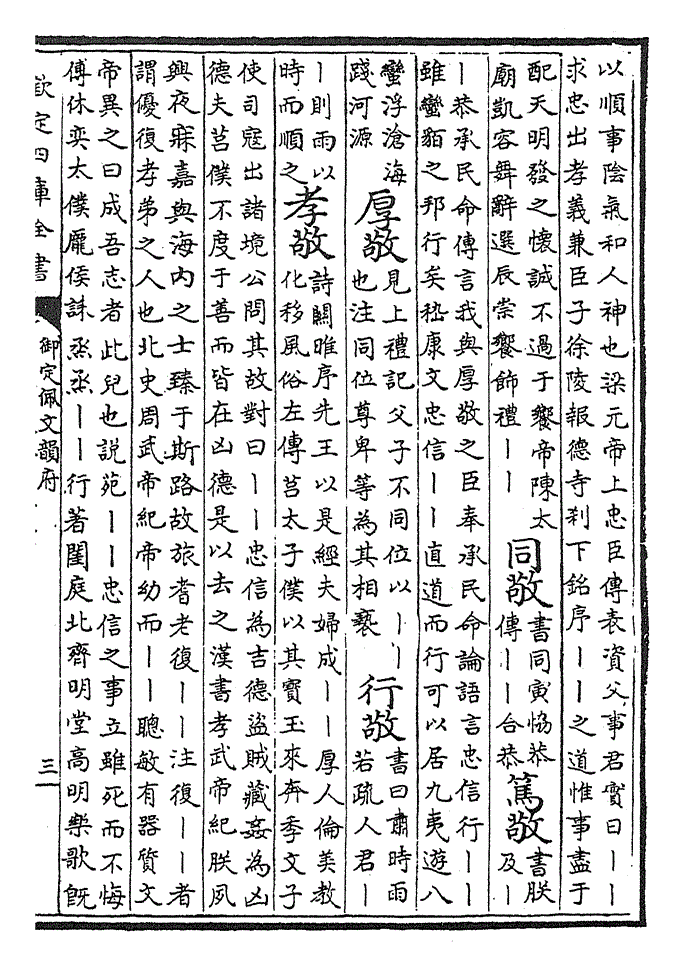 以順事陰氣和人神也梁元帝上忠臣傳表資父事君實曰丨丨
求忠出孝義兼臣子徐陵報德寺刹下銘序丨丨之道惟事盡于
配天明發之懷誠不過于饗帝陳太
廟凱容舞辭選辰崇饗飾禮丨丨
同敬
書同寅恊恭
傳丨丨合恭
篤敬
書朕
及丨
丨恭承民命傳言我與厚敬之臣奉承民命論語言忠信行丨丨
雖蠻貊之邦行矣嵇康文忠信丨丨直道而行可以居九夷遊八
蠻浮滄海
踐河源
厚敬
見上禮記父子不同位以丨丨
也注同位尊卑等為其相褻
行敬
書曰肅時雨
若疏人君丨
丨則雨以
時而順之
孝敬
詩關雎序先王以是經夫婦成丨丨厚人倫美教
化移風俗左傳莒太子僕以其寶玉來奔季文子
使司寇出諸境公問其故對曰丨丨忠信為吉德盜賊藏姦為凶
德夫莒僕不度于善而皆在凶德是以去之漢書孝武帝紀朕夙
興夜寐嘉與海内之士臻于斯路故旅耆老復丨丨注復丨丨者
謂優復孝弟之人也北史周武帝紀帝幼而丨丨聰敏有器質文
帝異之曰成吾志者此兒也說苑丨丨忠信之事立雖死而不悔
傅休奕太僕龐侯誄烝烝丨丨行著閨庭北齊明堂高明樂歌旣
欽定四庫全書
御定佩文韻府
三